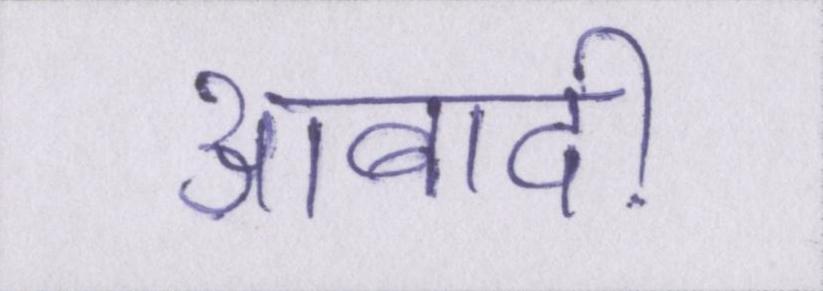 आबादी